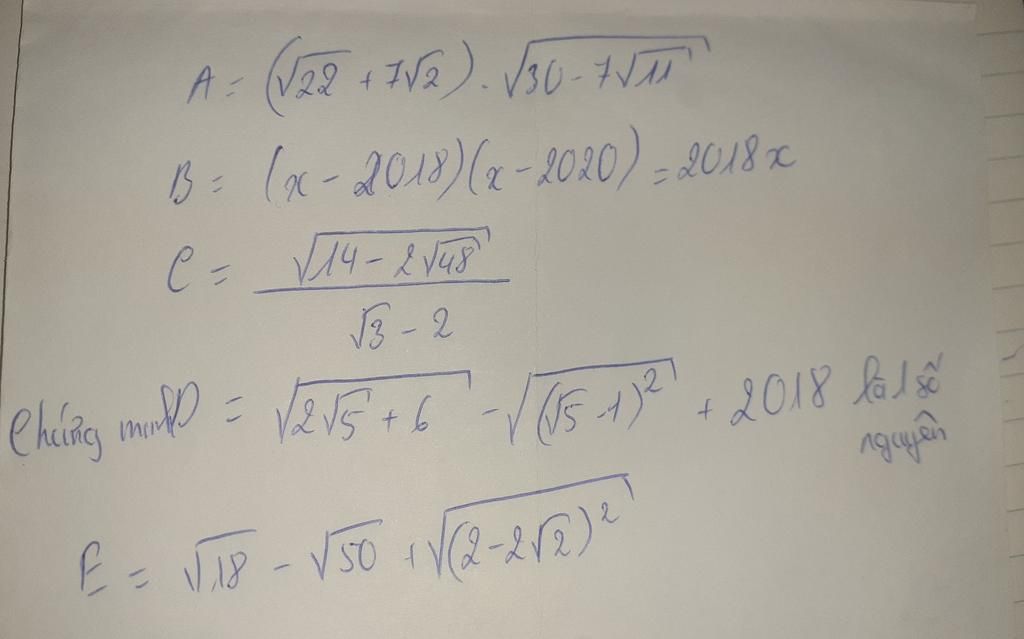 A = (√22 + 7√2) . √(30 - 7√11)
B = (x - 2018)(x - 2020) = 2018x
C = √(14 - 2√48) / (√3 - 2)
Chứng minh D = √(2√5 + 6) - √((√5 - 1)²) + 2018 là 1 số nguyên
E = √18 - √50 + √((2 - 2√2)²)